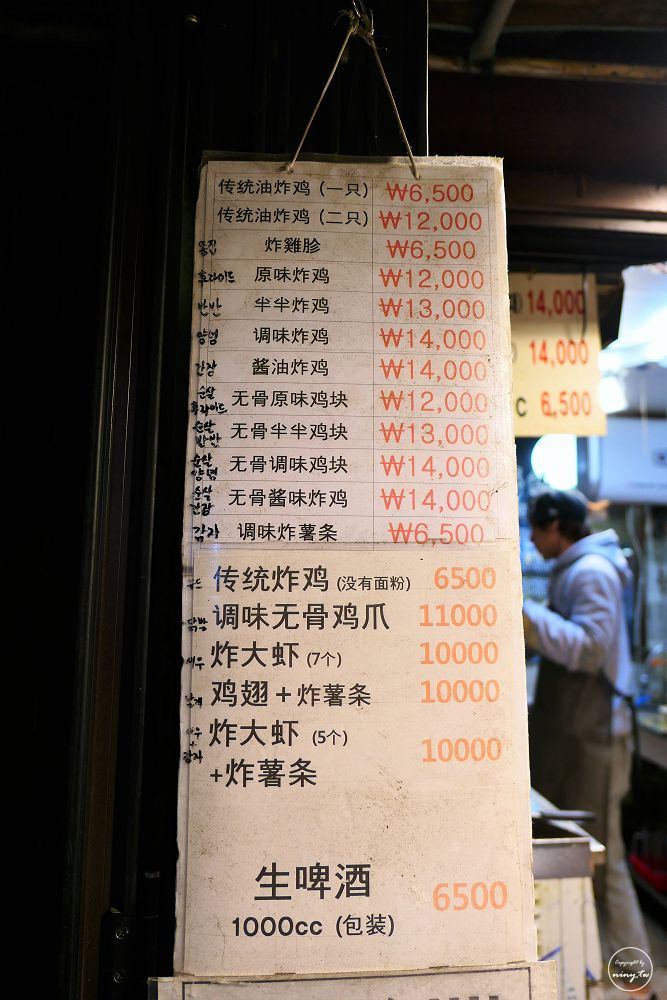 传统油炸鸡 (一只) ₩6,500
传统油炸鸡 (二只) ₩12,000
똥집 炸雞胗 ₩6,500
후라이드 原味炸鸡 ₩12,000
반반 半半炸鸡 ₩13,000
양념 调味炸鸡 ₩14,000
간장 酱油炸鸡 ₩14,000
순살
후라이드 无骨原味鸡块 ₩12,000
순살
반반 无骨半半鸡块 ₩13,000
순살
양념 无骨调味鸡块 ₩14,000
순살
간장 无骨酱味炸鸡 ₩14,000
감자 调味炸薯条 ₩6,500
传统炸鸡 (没有面粉) 6500
닭발 调味无骨鸡爪 11000
새우 炸大虾 (7个) 10000
鸡翅+炸薯条 10000
새우 炸大虾 (5个) 10000
감자 +炸薯条
生啤酒 6500
1000cc (包装)
14,000
14,000
C 6,500
Copyright by
niny.tw